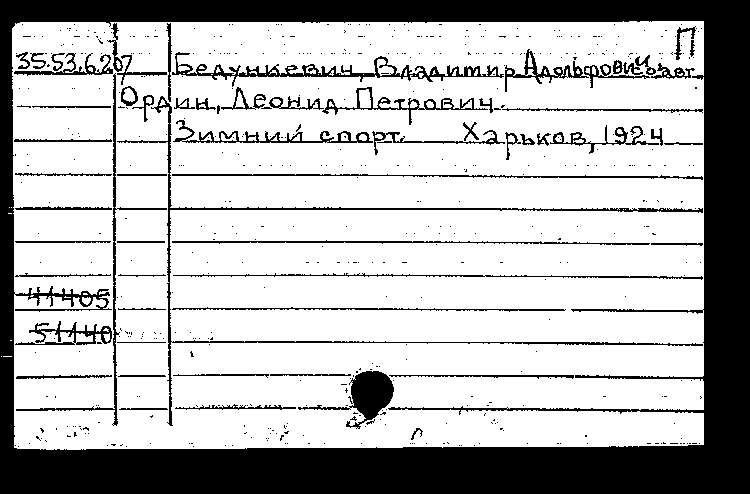 П
35.53.6.207 Бедункевич, Владимир Адольфович соавт.
Ордин, Леонид Петрович.
Зимний спорт. Харьков, 1924
41405
51140